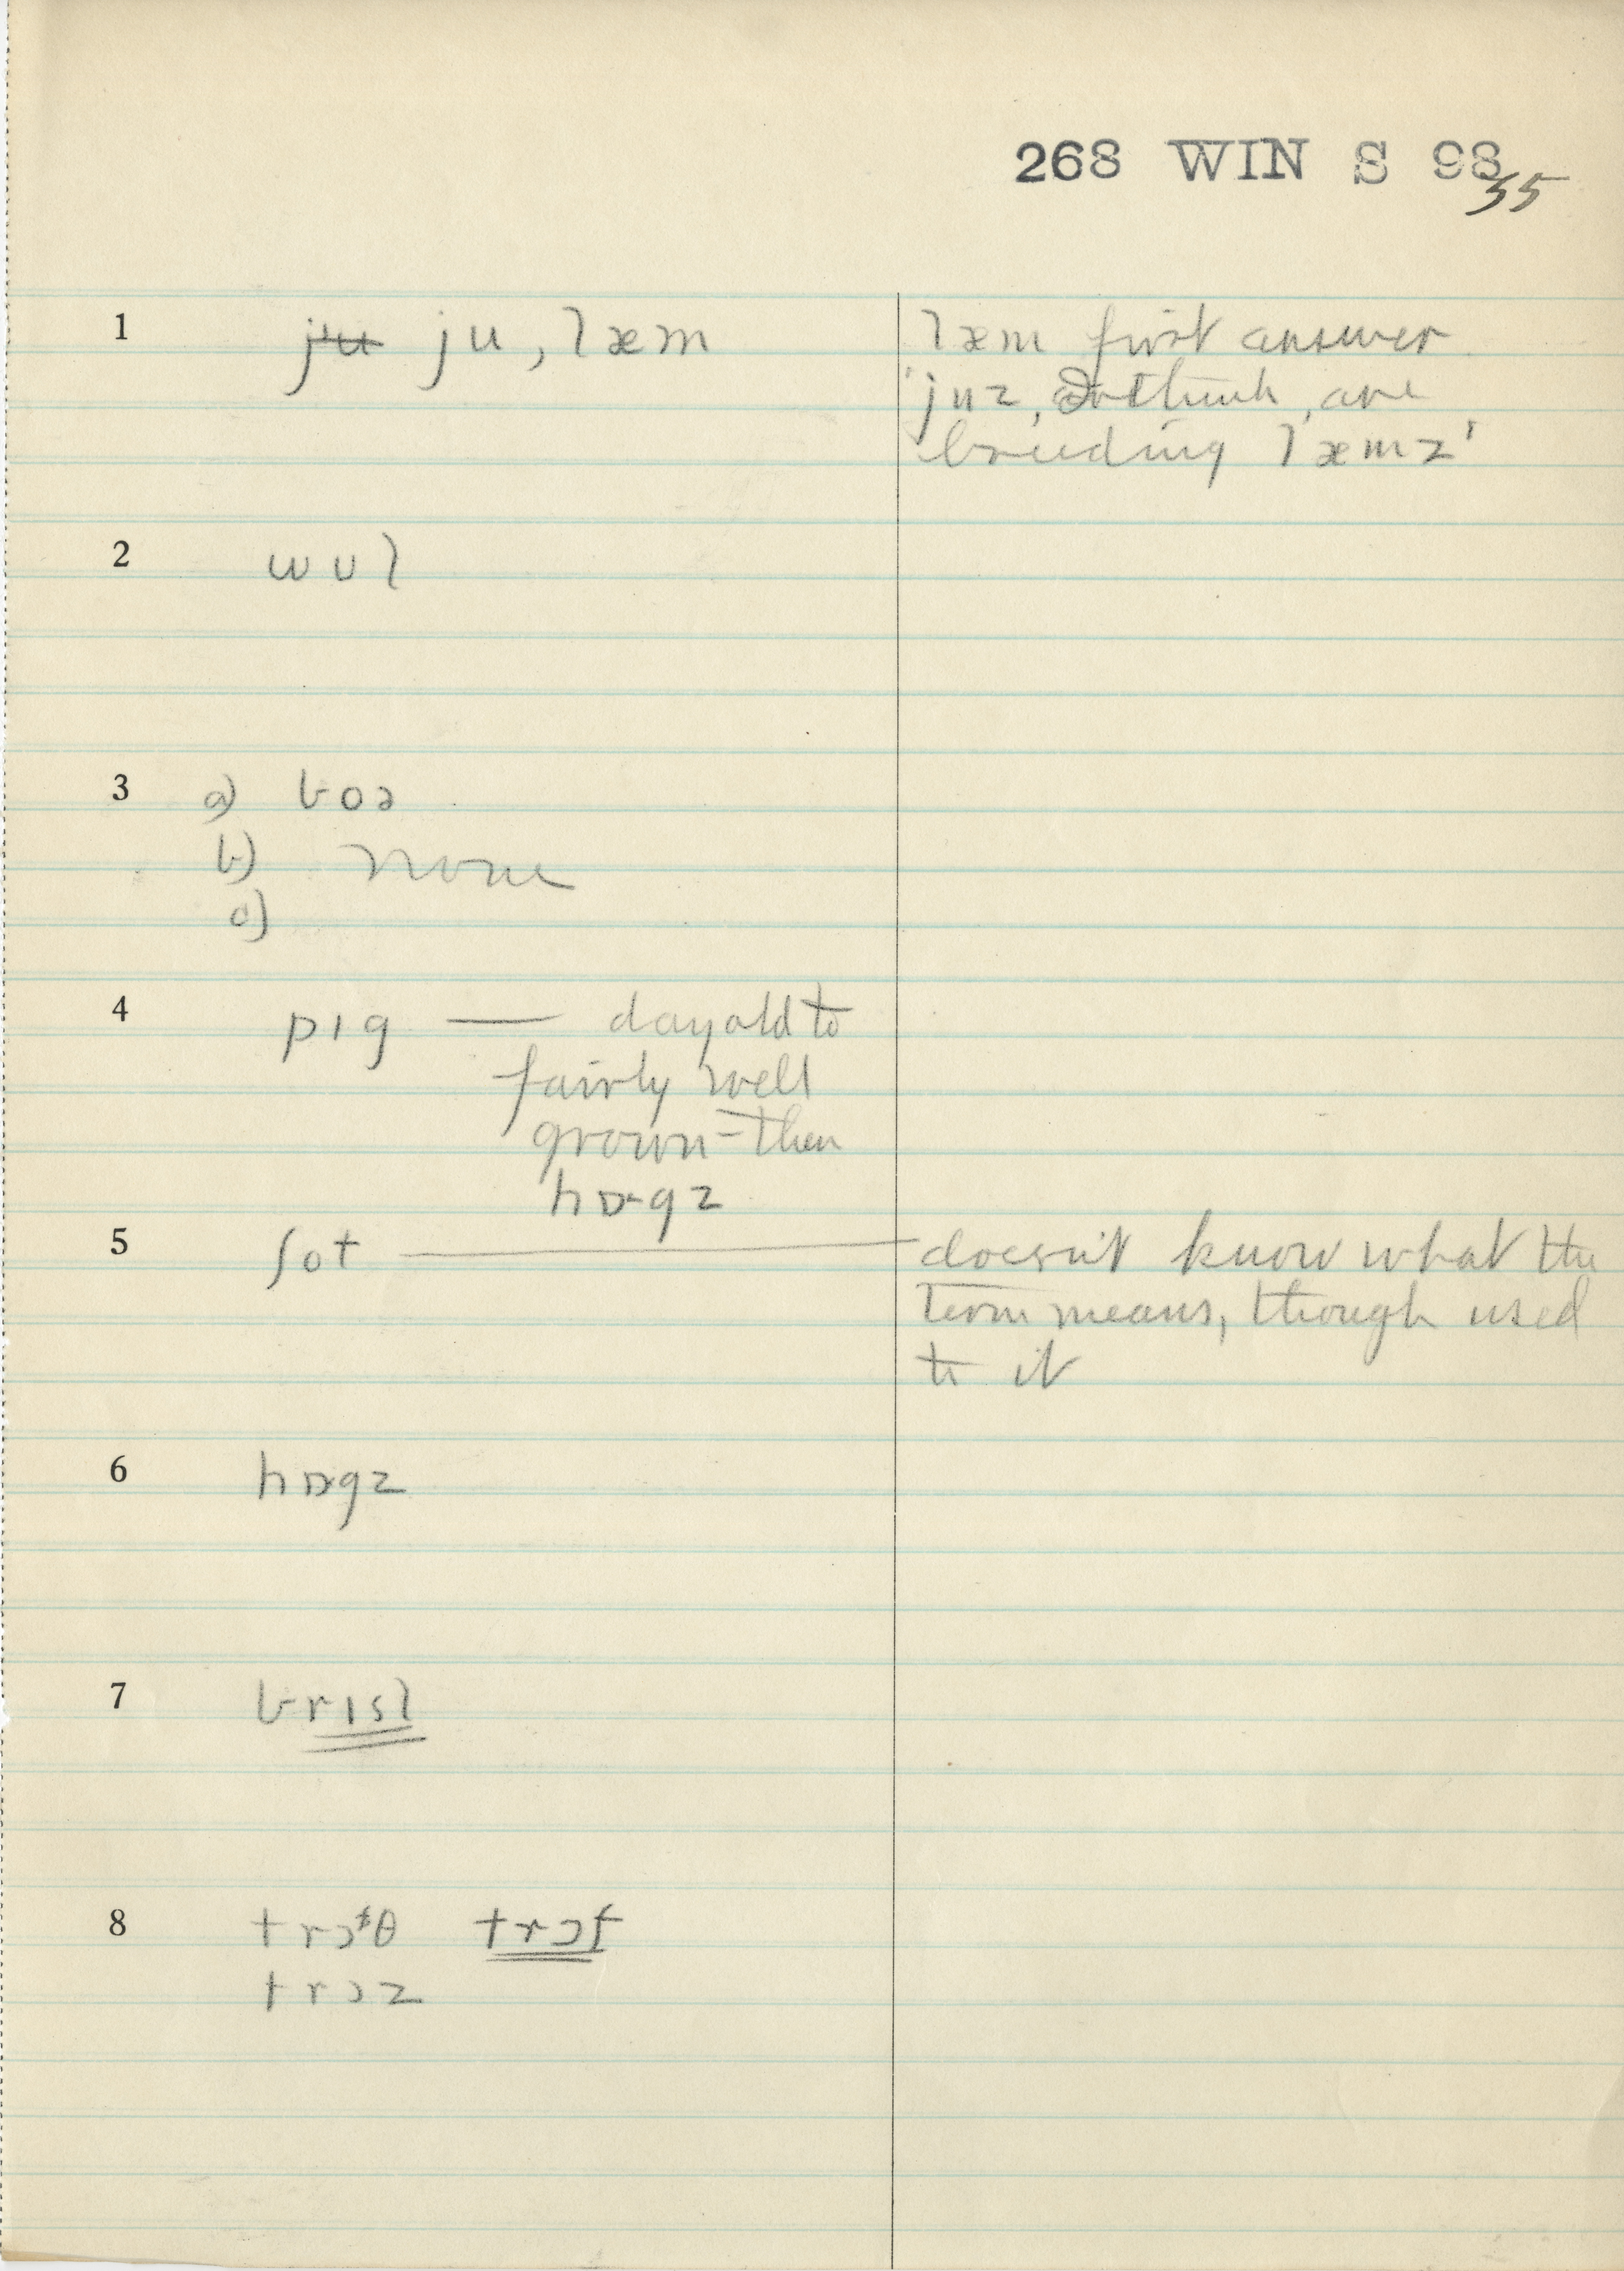 268 WIN S 98
35
1 ju ju, læm
læm first answer
'juz, I think, are
breeding læmz'
2 wul
3 a) boə
b) none
c)
4 pɪg — day old to
fairly well
grown - then
hɒgz
5 ʃot — doesn't know what the
term means, though used
to it
6 hɒgz
7 brɪsl
8 trɔᵗθ trɔf
trɔz